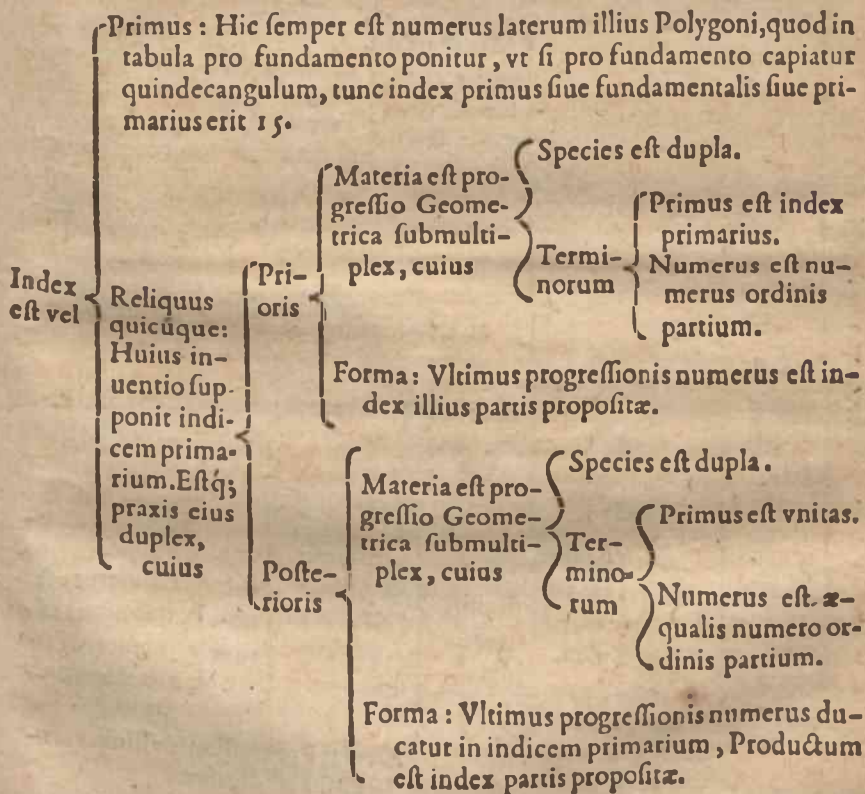 Primus : Hic ſemper eſt numerus laterum illius Polygoni, quod in
tabula pro fundamento ponitur, vt ſi pro fundamento capiatur
quindecangulum, tunc index primus ſiue fundamentalis ſiue pri-
marius erit 15.
Index
eſt vel
Reliquus
quicũque:
Huius in-
uentio ſup-
ponit indi-
cem prima-
rium. Eſtq́;
praxis eius
duplex,
cuius
Pri-
oris
Materia eſt pro-
greſſio Geome-
trica ſubmulti-
plex, cuius
Species eſt dupla.
Termi-
norum
Primus eſt index
primarius.
Numerus eſt nu-
merus ordinis
partium.
Forma : Vltimus progreſſionis numerus eſt in-
dex illius partis propoſitæ.
Poſte-
rioris
Materia eſt pro-
greſſio Geome-
trica ſubmulti-
plex, cuius
Species eſt dupla.
Ter-
mino-
rum
Primus eſt vnitas.
Numerus eſt æ-
qualis numero or-
dinis partium.
Forma : Vltimus progreſſionis numerus du-
catur in indicem primarium, Productum
eſt index partis propoſitæ.